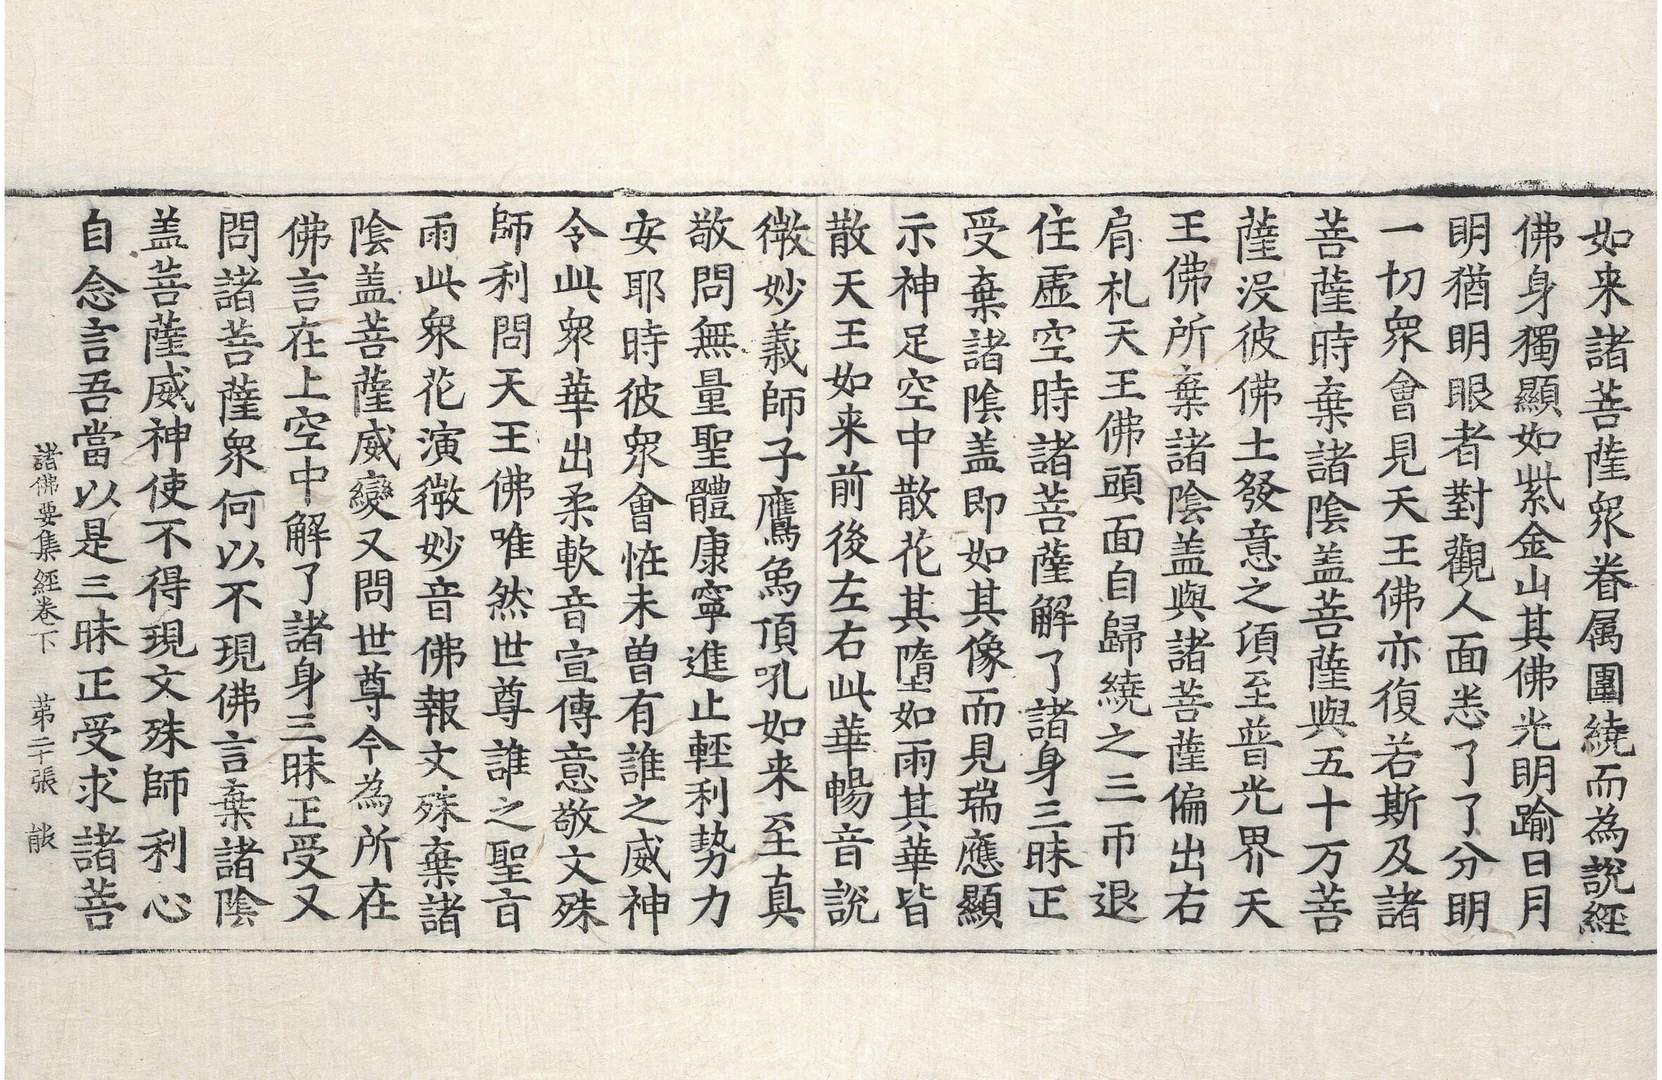 如来諸菩薩衆眷属圍繞而為說經
佛身獨顯如紫金山其佛光明踰日月
明猶明眼者對觀人面悉了了分明
一切衆會見天王佛亦復若斯及諸
菩薩時棄諸陰盖菩薩與五十万菩
薩没彼佛土發意之頃至普光界天
王佛所棄諸陰盖與諸菩薩偏出右
肩礼天王佛頭面自歸繞之三帀退
住虛空時諸菩薩解了諸身三昧正
受棄諸陰盖即如其像而見瑞應顯
示神足空中散花其墮如雨其華皆
散天王如来前後左右此華暢音說
微妙義師子鷹為頂吼如来至真
敬問無量聖體康寧進止輕利勢力
安耶時彼衆會恠未曽有誰之威神
令此衆華出柔軟音宣傳意敬文殊
師利問天王佛唯然世尊誰之聖旨
雨此衆花演微妙音佛報文殊棄諸
陰盖菩薩威變又問世尊今為所在
佛言在上空中解了諸身三昧正受又
問諸菩薩衆何以不現佛言棄諸陰
盖菩薩威神使不得現文殊師利心
自念言吾當以是三昧正受求諸菩
諸佛要集經卷下 第二十張